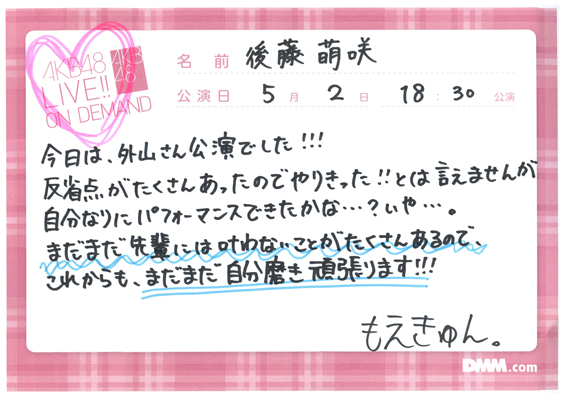 AKB48
LIVE!!
ON DEMAND
AKB
48
名前 後藤 萌咲
公演日 5月 2日 18:30 公演
今日は、外山さん公演でした!!!
反省点がたくさんあったのでやりきった!!とは言えませんが
自分なりにパフォーマンスできたかな…?いや…。
まだまだ先輩には叶わないことがたくさんあるので、
これからも、まだまだ自分磨き頑張ります!!!
もえきゅん。
DMM.com